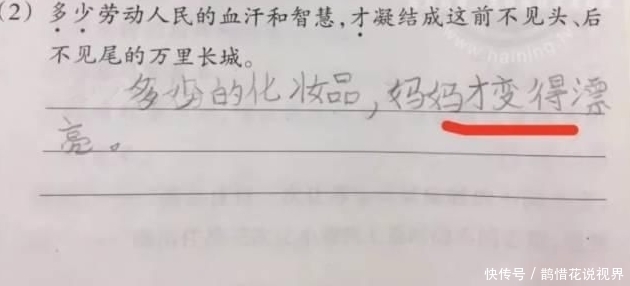 (2) 多少劳动人民的血汗和智慧,才凝结成这前不见头、后
不见尾的万里长城。
多少的化妆品，妈妈才变得漂
亮。
快传号／鹊惜花说视界